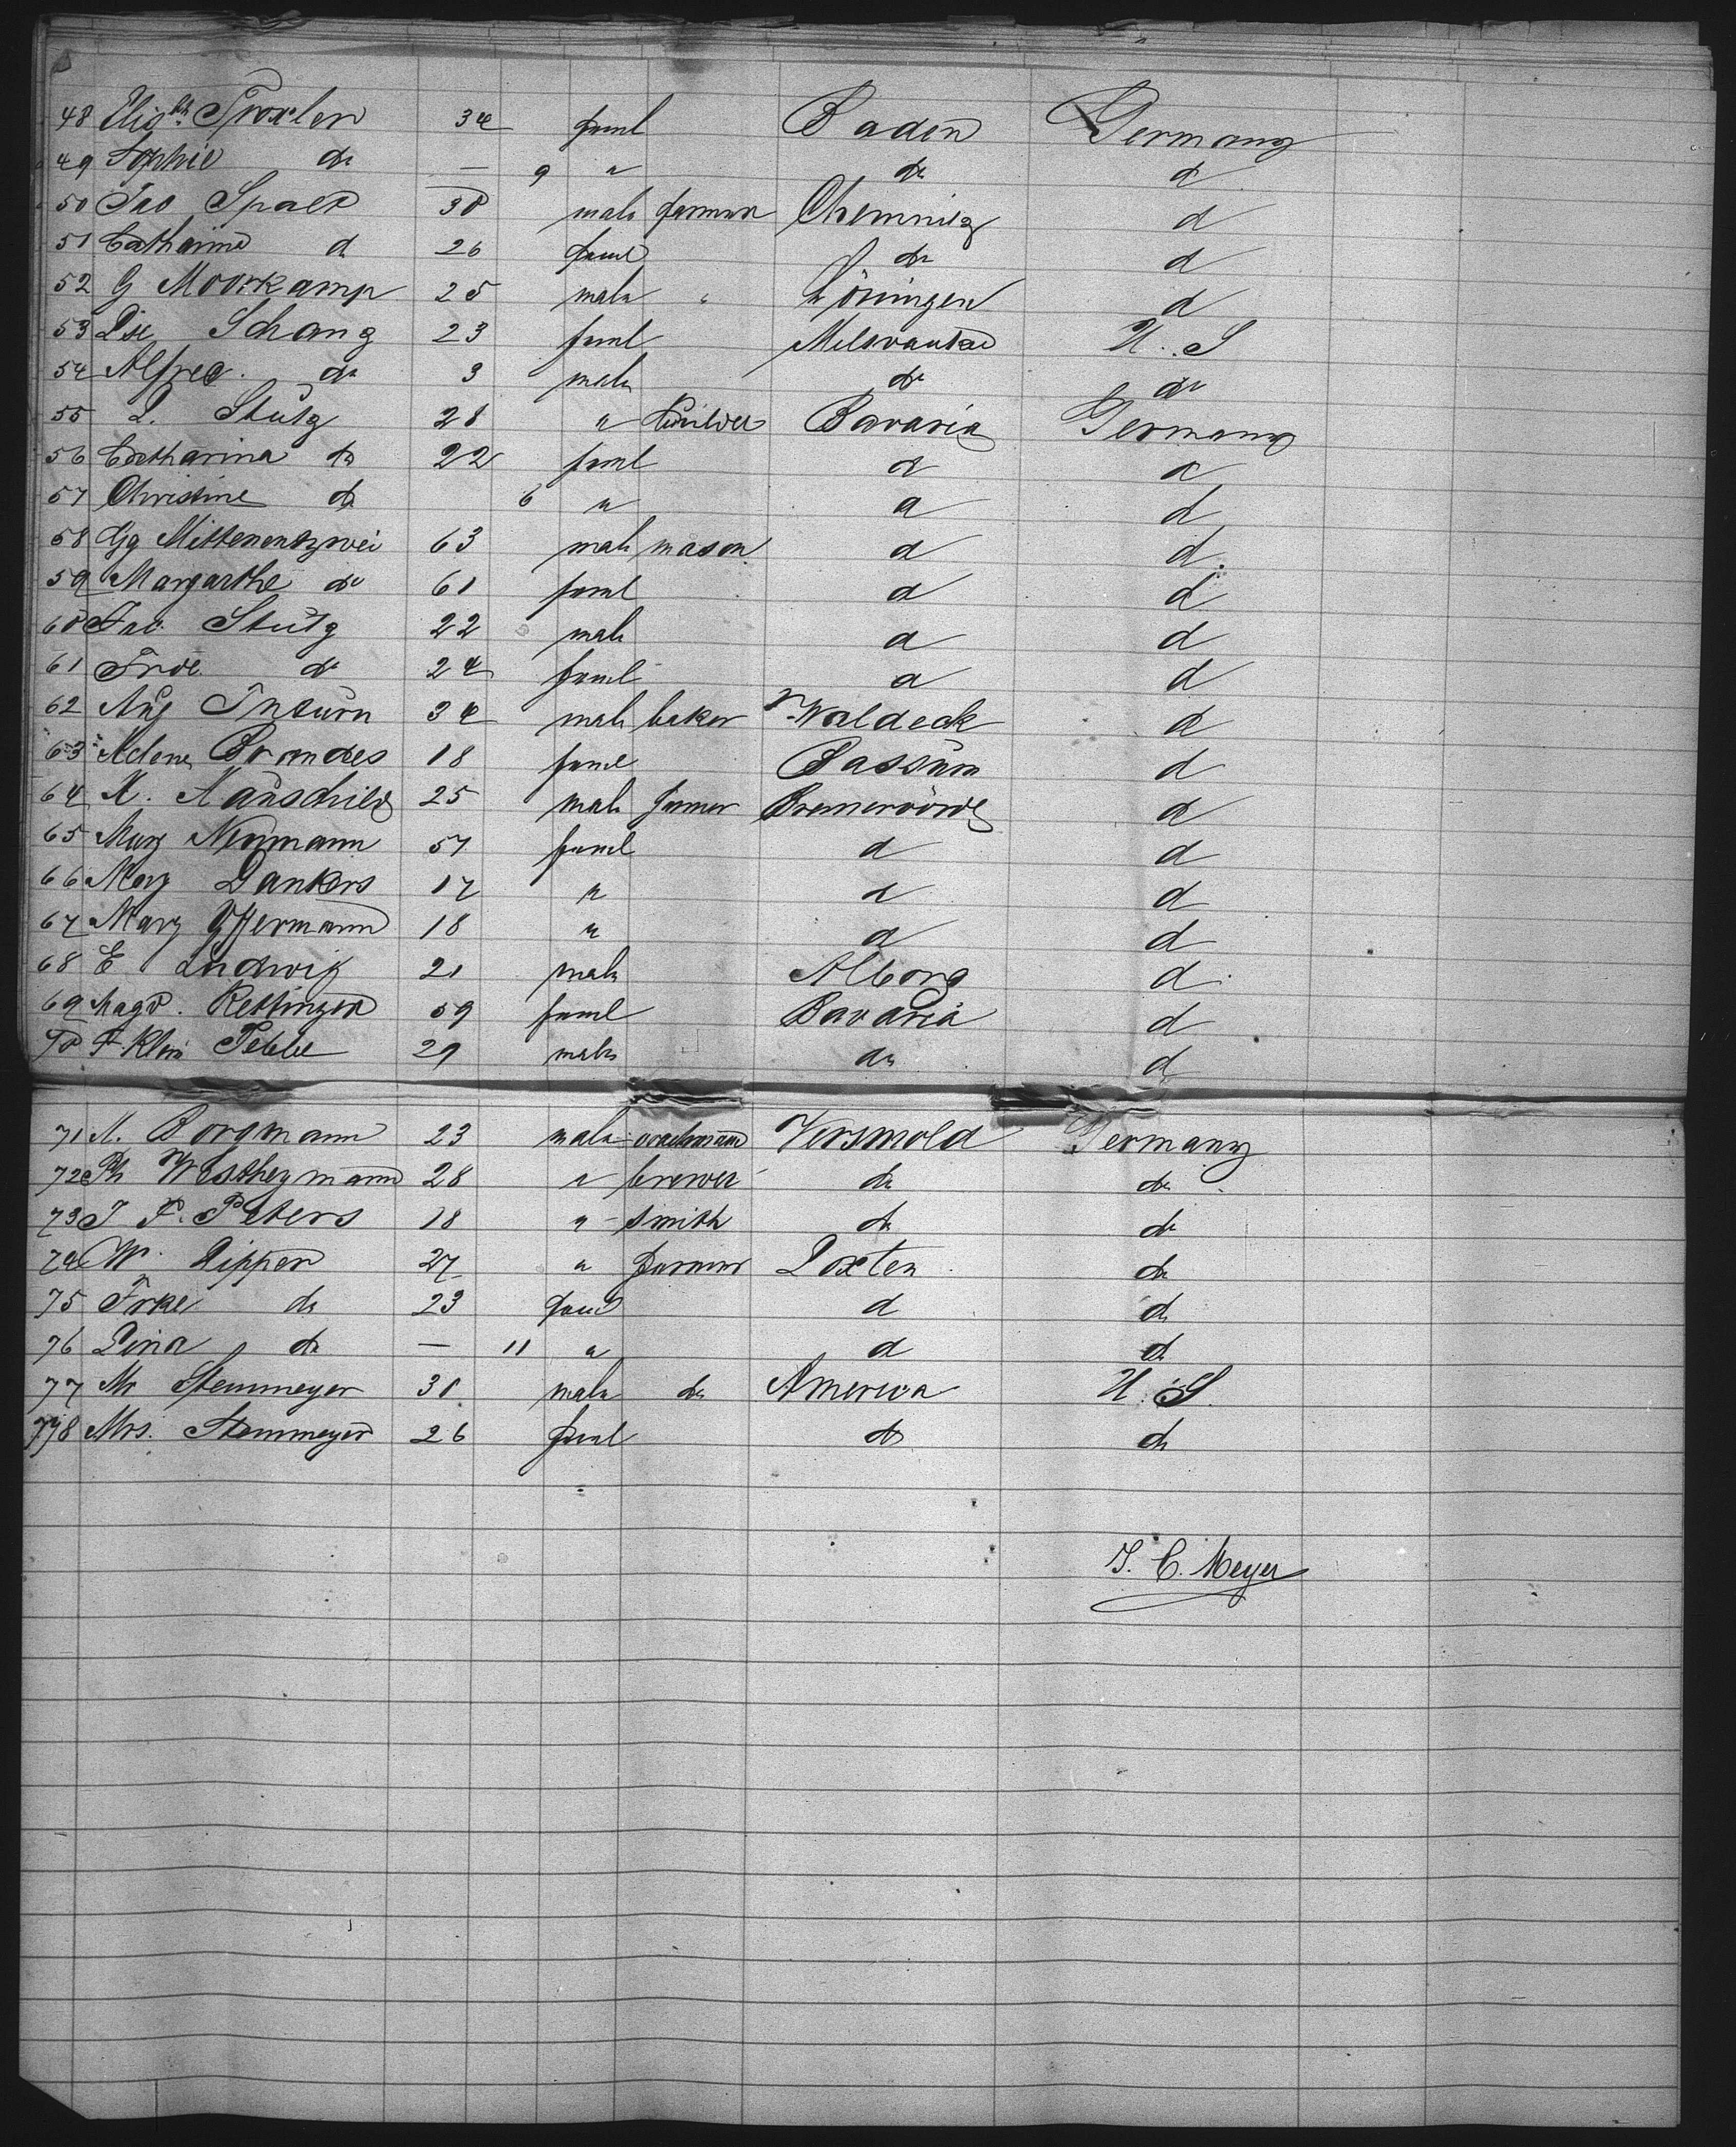 48 Elisbth Troxler 34 feml Baden Germany
49 Sophie do — 9 " do d
50 Jac Spaed 30 male farmer Chemnitz d
51 Catharine d 26 feml do d
52 G Moorkamp 25 male " Löningen d
53 Lise Schang 23 feml Milwaukee U. S
54 Alfred do 3 male do do
55 L. Stütz 28 " Builder Bavaria Germany
56 Catharina do 22 feml d d
57 Christine do 6 " d d
58 Gg Mittenentzwei 63 male mason d d
59 Margarthe do 61 feml d d
60 Jac. Stütz 22 male d d
61 Frde. do 24 feml d d
62 Aug 34 male baker Waldeck d
63 Helene Brandes 18 feml Bassum d
64 25 male farmer Bremervörde d
65 Marg 57 feml d d
66 Marg Dankers 17 " d d
67 Marg 18 " d d
68 E Ludwig 21 male Alborg d
69 Magd. Rettinger 59 feml Bavaria d
70 29 male do d
71 A. Borgmann 23 male Versmold Germany
72 Ph 28 " brewer do do
73 J F. Peters 18 " smith do do
74 W. Lipper 27 " farmer Loxten do
75 Frke do 23 feml d do
76 Lina do — 11 " d do
77 Mr Stemmeyer 30 male do America U. S.
78 Mrs. Stemmeyer 26 feml do do
J. C. Meyer